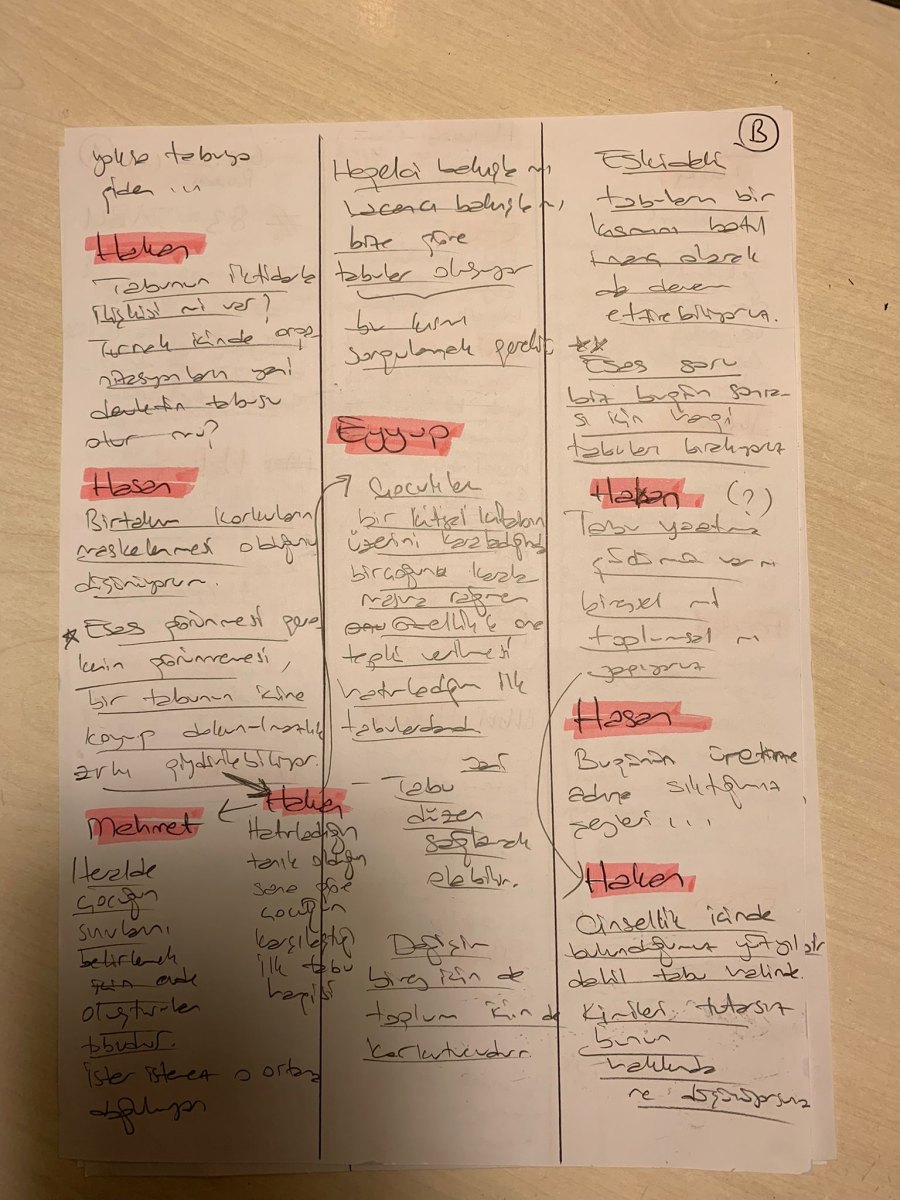 B
yoksa tabuya
giden ...
Hakan
Tabunun iktidarla
ilişkisi mi var?
Türnek içinde orga
nizasyonların yani
devletin tabusu
olur mu?
Hasan
Birtakım korkuların
maskelenmesi olduğunu
düşünüyorum.
* Esas görünmesi gere
kenin görünmemesi,
bir tabunun içine
koyup dokunulmazlık
zırhı giydirilebiliyor.
Mehmet
Herhalde
çocuğun
sınırlarını
belirlemek
için evde
oluşturulan
tabudur.
ister istemez o ortama
doğuluyor
Hakan
Hatırladığın
tanık olduğun
sana göre
çocuğun
karşılaştığı
ilk tabu
hangisi
Hegelci bakışla mı
Lacancı bakışla mı,
bize göre
tabular oluşuyor
bu kısmı
sorgulamak gerekir
Eyyup
Çocukken
bir kutsal kitabın
üzerini karaladığımda
birçoğuna karala
mama rağmen
özellikle ona
tepki verilmesi
hatırladığım ilk
tabulardandı
Tabu
düzen
sağlamak
olabilir.
Değişim
birey için de
toplum için de
korkutucudur.
Eskideki
tabuların bir
kısmını batıl
inanç olarak
da devam
ettirebiliyoruz.
**
Esas soru
biz bugün sonra
sı için hangi
tabuları bırakıyoruz
Hakan (?)
Tabu yaratma
güdümüz var mı
bireysel mi
toplumsal mı
yapıyoruz
Hasan
Bugünün üretime
adına sıkıştığımız,
şeyleri ...
Hakan
Cinsellik içinde
bulunduğumuz yüzyılda
dahil tabu halinde.
Kimileri tutarsız
bunun
hakkında
ne düşünüyorsunuz